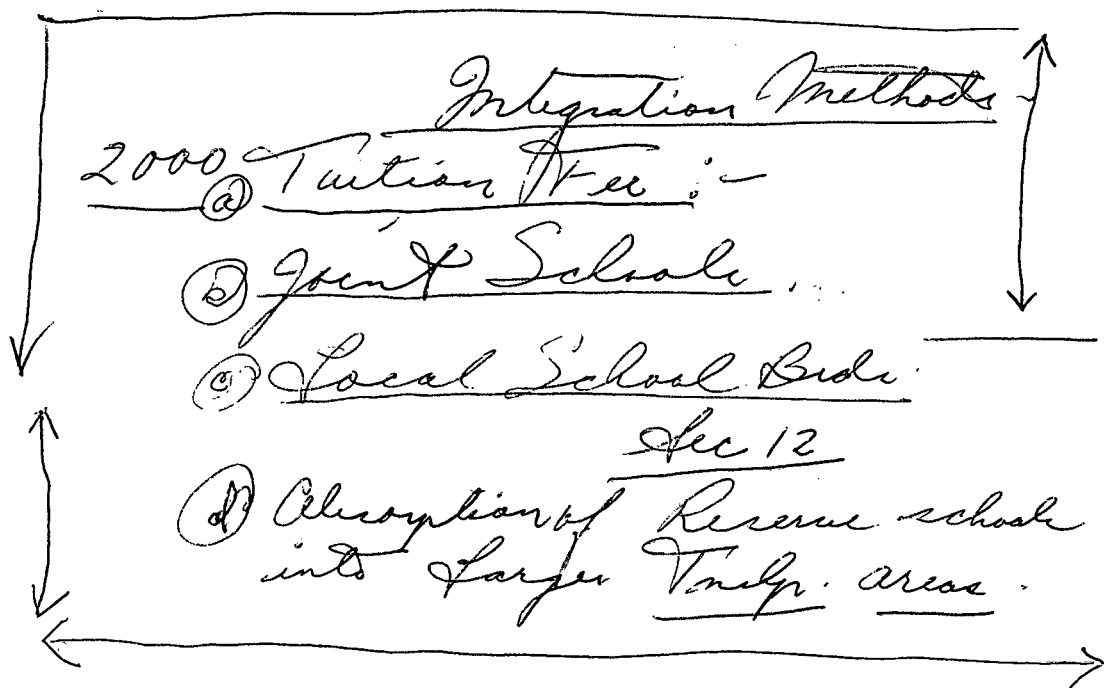 Integration Methods -
2000 Tuition Fee :-
(a)
(b) Joint Schools ...
(c) Local School Brds.
Sec 12
(d) Absorption of Reserve schools
into Larger Tnslp. areas.